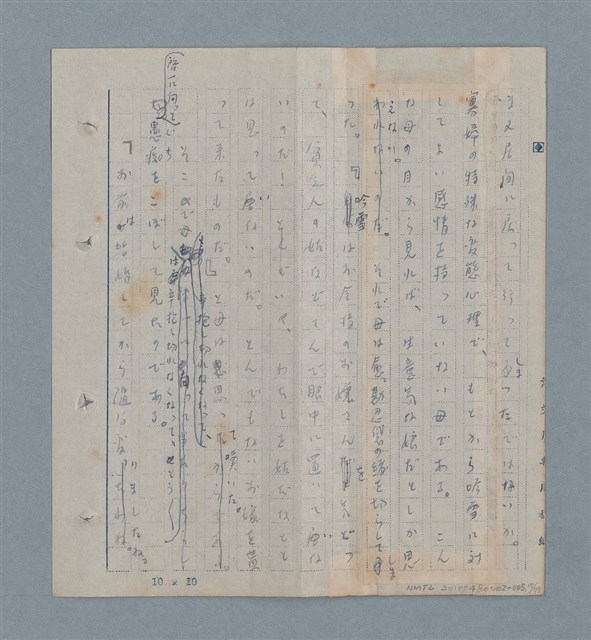 また居間に戻って行ってしまったではないか。
寡婦の特殊な変態心理で、もとから吟雪に対
してよい感情を持っていない母である。こん
な母の目から見れば、生意気な娘だとしか思
えない。
われないのだ。それで母は愈〻勘忍袋の緒を切らしてしま
った。『吟雪はお金持のお嬢さんを
て、貧乏人の姑なぞてんで眼中に置いて居な
いのだ！とんでいや、わたしを姑だなどと
は思って居ないのだ。とんでもないお嫁を貰
って来たものだ。』と母は思って嘆いた。
そこで母
は辛抱し切れなくなって、とうとう
啓一に向って
愚痴をこぼして見たのである。
「お前は結婚してから随分変りましたね。
10 × 20
NMTL